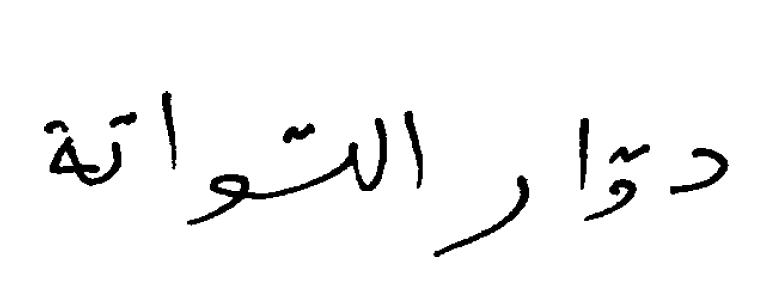 دوّار اللّواتة